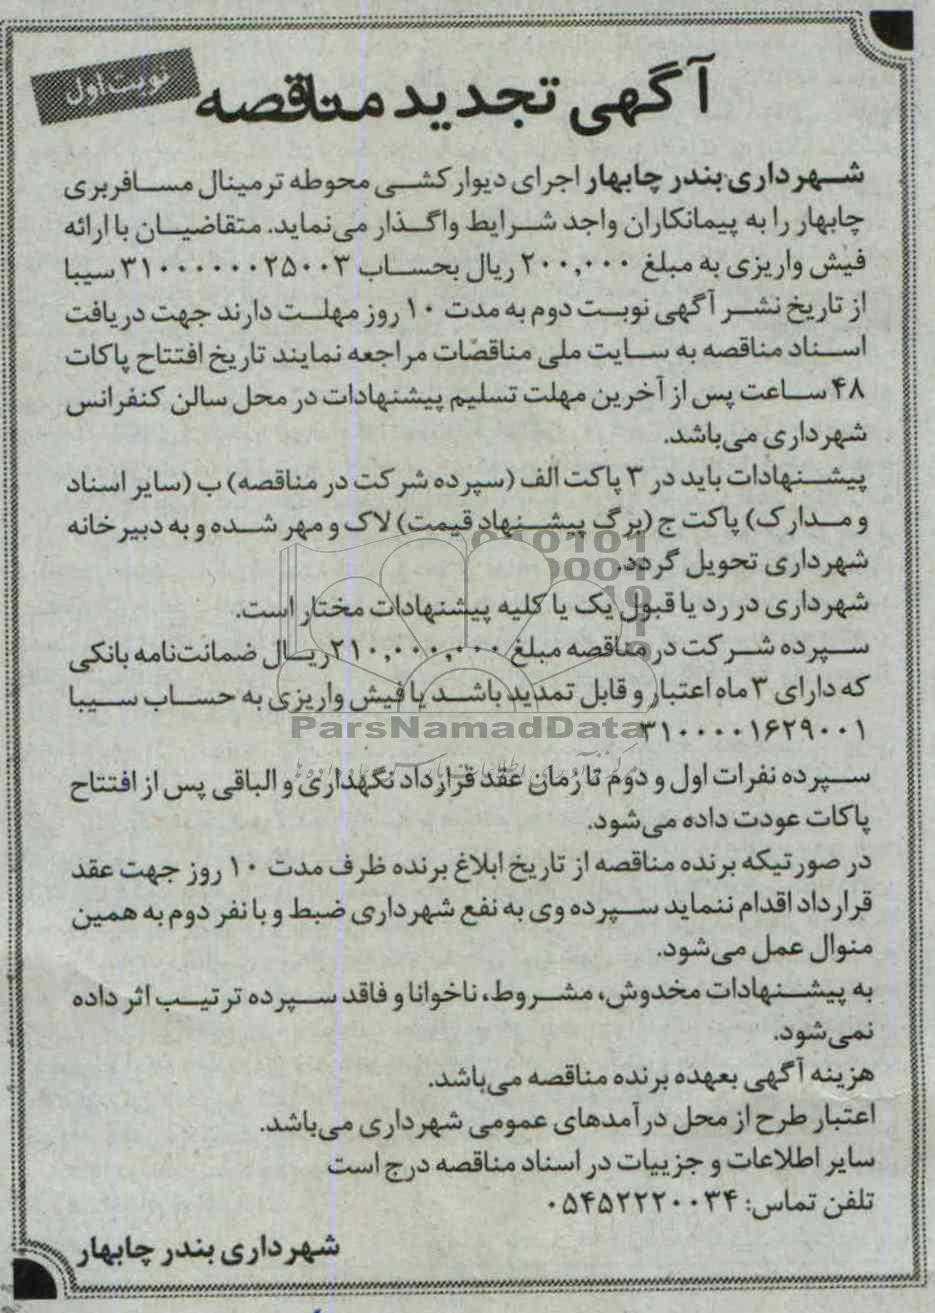 نوبت اول
آگهی تجدید مناقصه
شهرداری بندر چابهار اجرای دیوارکشی محوطه ترمینال مسافربری
چابهار را به پیمانکاران واجد شرایط واگذار می‌نماید. متقاضیان با ارائه
فیش واریزی به مبلغ ۲۰۰,۰۰۰ ریال بحساب ۳۱۰۰۰۰۰۰۲۵۰۰۳ سیبا
از تاریخ نشر آگهی نوبت دوم به مدت ۱۰ روز مهلت دارند جهت دریافت
اسناد مناقصه به سایت ملی مناقصات مراجعه نمایند تاریخ افتتاح پاکات
۴۸ ساعت پس از آخرین مهلت تسلیم پیشنهادات در محل سالن کنفرانس
شهرداری می‌باشد.
پیشنهادات باید در ۳ پاکت الف (سپرده شرکت در مناقصه) ب (سایر اسناد
و مدارک) پاکت ج (برگ پیشنهاد قیمت) لاک و مهر شده و به دبیرخانه
شهرداری تحویل گردد.
شهرداری در رد یا قبول یک یا کلیه پیشنهادات مختار است.
سپرده شرکت در مناقصه مبلغ ۲۱۰,۰۰۰,۰۰۰ ریال ضمانت‌نامه بانکی
که دارای ۳ ماه اعتبار و قابل تمدید باشد یا فیش واریزی به حساب سیبا
۳۱۰۰۰۰۱۶۲۹۰۰۱
ParsNamadData
سپرده نفرات اول و دوم تا زمان عقد قرارداد نگهداری و الباقی پس از افتتاح
پاکات عودت داده می‌شود.
در صورتیکه برنده مناقصه از تاریخ ابلاغ برنده ظرف مدت ۱۰ روز جهت عقد
قرارداد اقدام ننماید سپرده وی به نفع شهرداری ضبط و با نفر دوم به همین
منوال عمل می‌شود.
به پیشنهادات مخدوش، مشروط، ناخوانا و فاقد سپرده ترتیب اثر داده
نمی‌شود.
هزینه آگهی بعهده برنده مناقصه می‌باشد.
اعتبار طرح از محل درآمدهای عمومی شهرداری می‌باشد.
سایر اطلاعات و جزییات در اسناد مناقصه درج است
تلفن تماس: ۰۵۴۵۲۲۲۰۰۳۴
شهرداری بندر چابهار